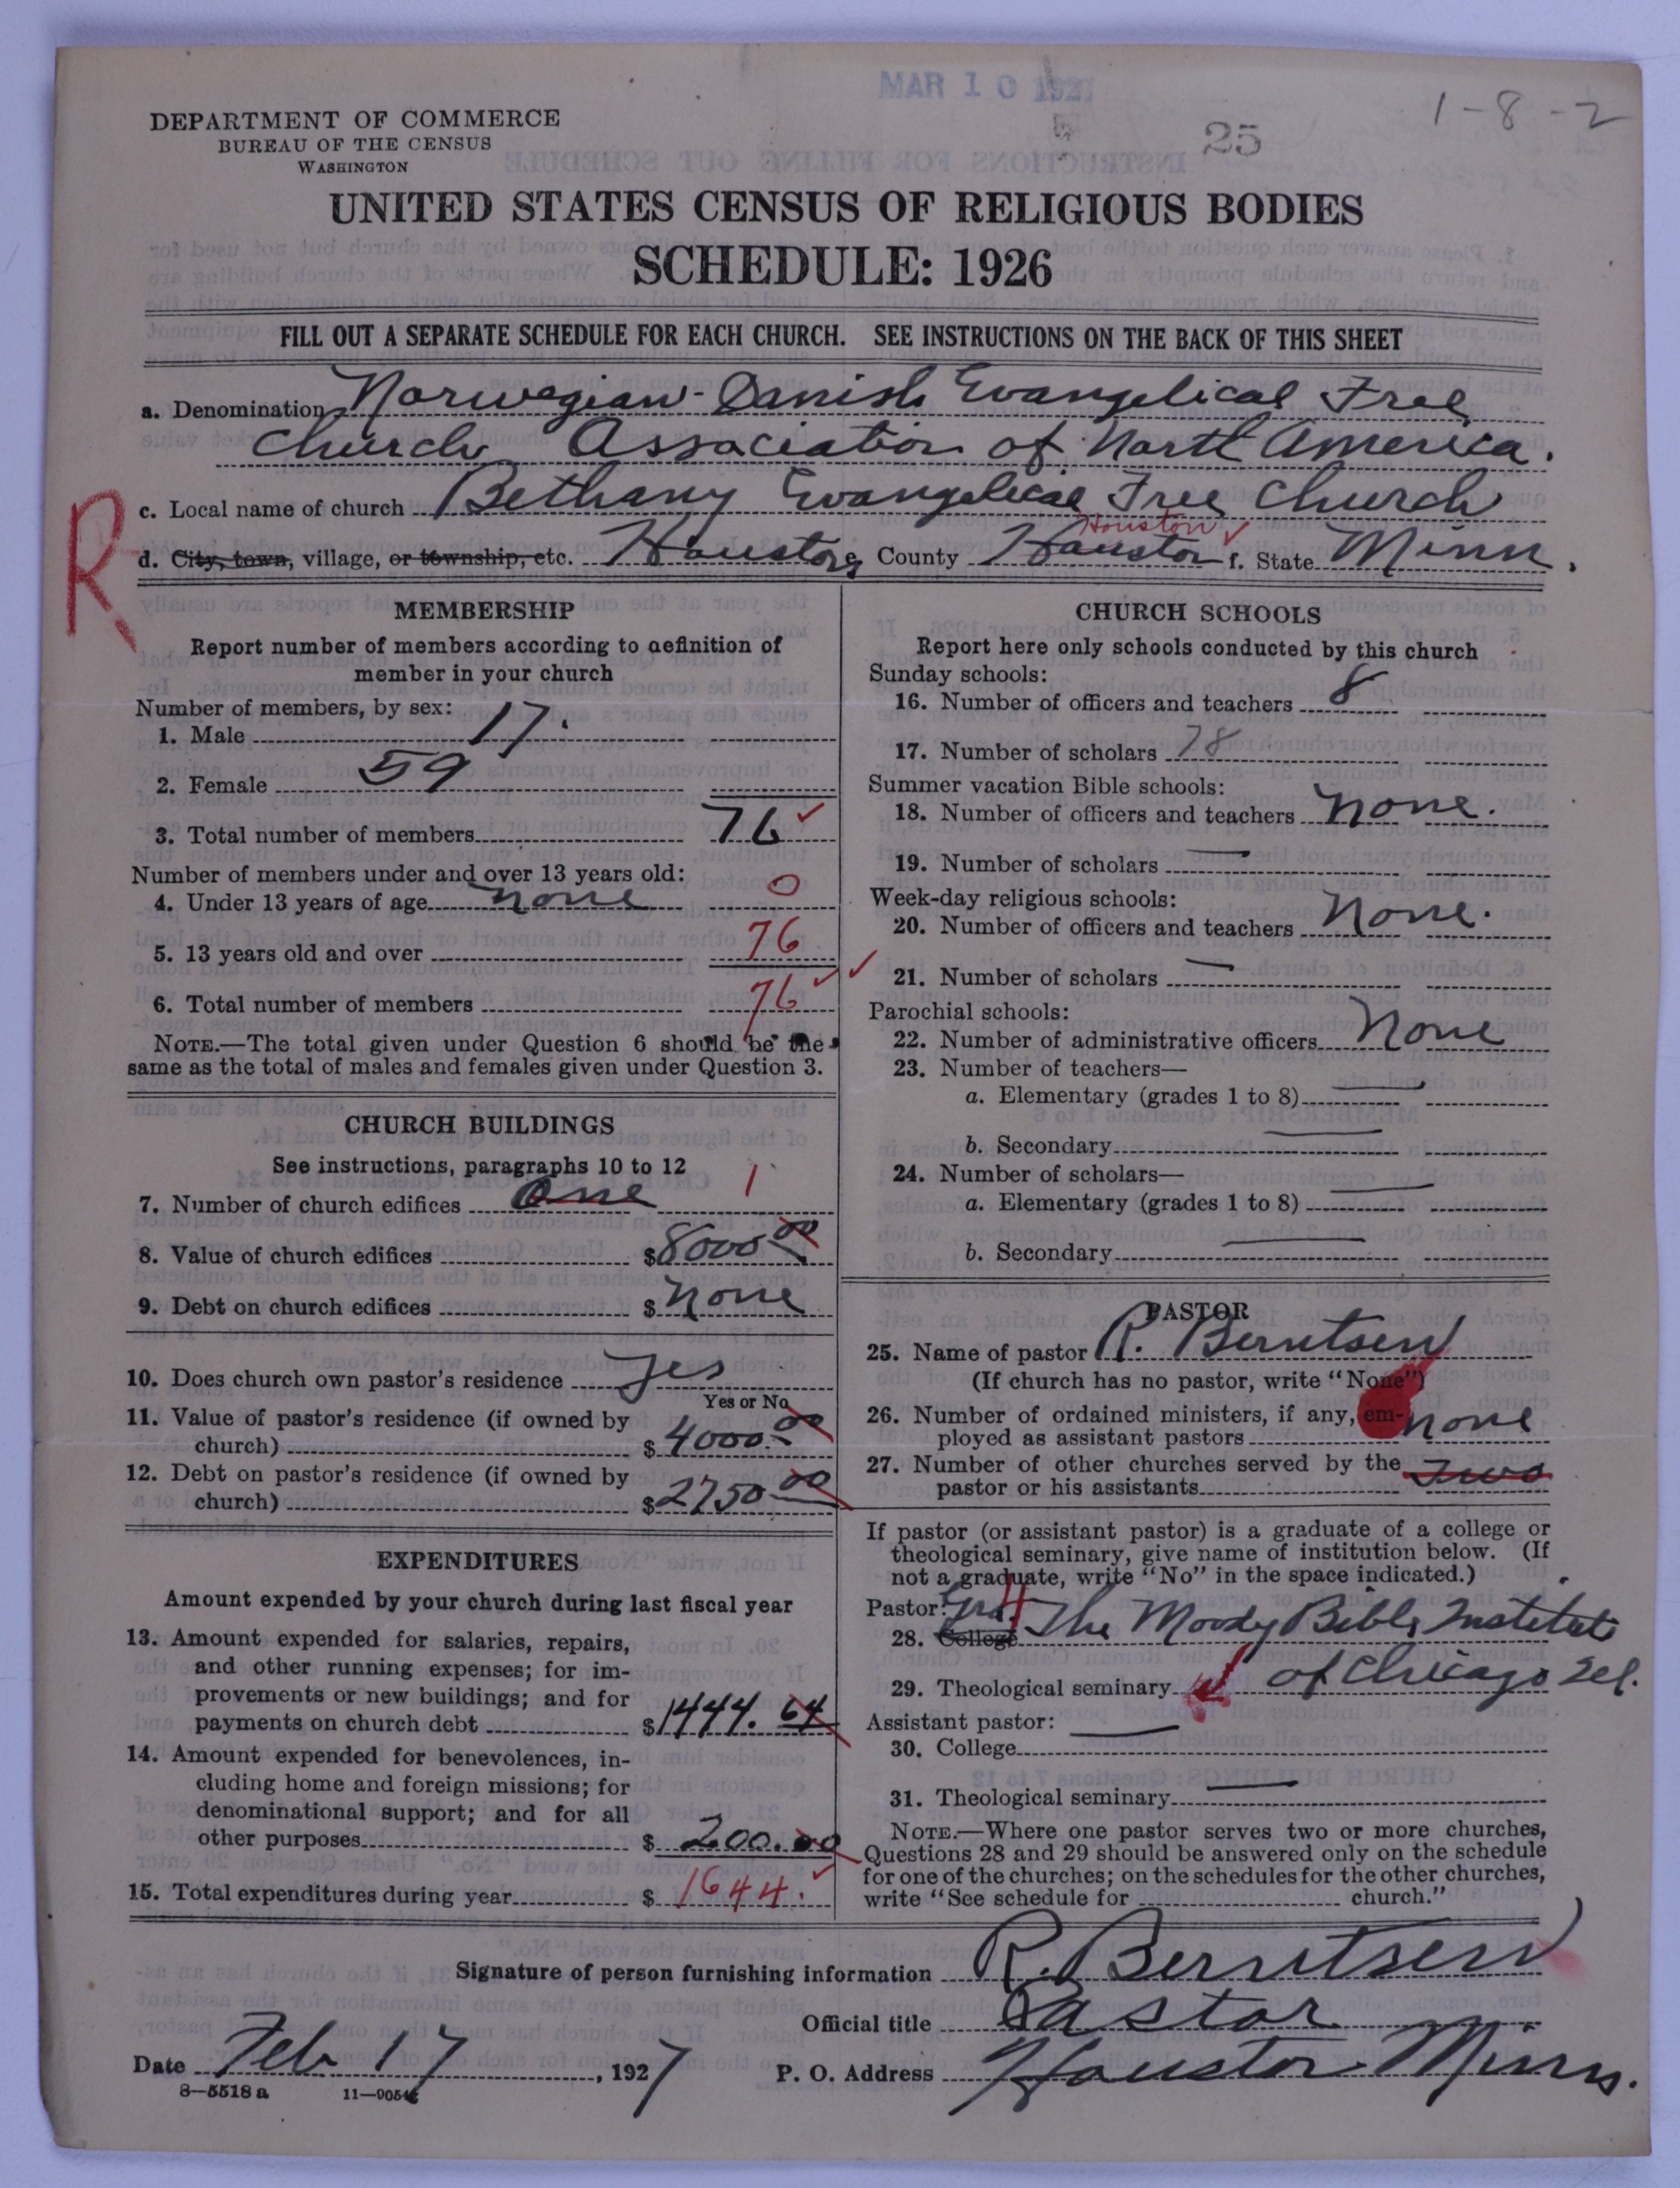 MAR 10 1927
1-8-2
25
DEPARTMENT OF COMMERCE
BUREAU OF THE CENSUS
WASHINGTON
UNITED STATES CENSUS OF RELIGIOUS BODIES
SCHEDULE: 1926
FILL OUT A SEPARATE SCHEDULE FOR EACH CHURCH. SEE INSTRUCTIONS ON THE BACK OF THIS SHEET
a. Denomination Norwegian-Danish Evangelical Free
Church Association of North America.
R
c. Local name of church Bethany Evangelical Free Church
Houston
d. City, town, village, or township, etc. Houston e. County Houston f. State Minn.
MEMBERSHIP
Report number of members according to definition of
member in your church
Number of members, by sex:
1. Male 17.
2. Female 59
3. Total number of members 76
Number of members under and over 13 years old:
4. Under 13 years of age none 0
5. 13 years old and over 76
6. Total number of members 76
NOTE.—The total given under Question 6 should be the
same as the total of males and females given under Question 3.
CHURCH BUILDINGS
See instructions, paragraphs 10 to 12
7. Number of church edifices One 1
8. Value of church edifices $8000 00
9. Debt on church edifices $ None
10. Does church own pastor's residence Yes
Yes or No
11. Value of pastor's residence (if owned by
church) $ 4000.00
12. Debt on pastor's residence (if owned by
church) $ 2750 00
EXPENDITURES
Amount expended by your church during last fiscal year
13. Amount expended for salaries, repairs,
and other running expenses; for im-
provements or new buildings; and for
payments on church debt $1444.64
14. Amount expended for benevolences, in-
cluding home and foreign missions; for
denominational support; and for all
other purposes $ 200.00
15. Total expenditures during year $ 1644.
CHURCH SCHOOLS
Report here only schools conducted by this church
Sunday schools:
16. Number of officers and teachers 8
17. Number of scholars 78
Summer vacation Bible schools:
18. Number of officers and teachers None.
19. Number of scholars
Week-day religious schools:
20. Number of officers and teachers None.
21. Number of scholars
Parochial schools:
22. Number of administrative officers None
23. Number of teachers—
a. Elementary (grades 1 to 8)
b. Secondary
24. Number of scholars—
a. Elementary (grades 1 to 8)
b. Secondary
PASTOR
25. Name of pastor R. Berntsen
(If church has no pastor, write "None")
26. Number of ordained ministers, if any, em-
ployed as assistant pastors none
27. Number of other churches served by the
pastor or his assistants two
If pastor (or assistant pastor) is a graduate of a college or
theological seminary, give name of institution below. (If
not a graduate, write "No" in the space indicated.)
Pastor: Grad. 4
28. College The Moody Bible Institute
29. Theological seminary of Chicago Ill.
Assistant pastor:
30. College
31. Theological seminary
NOTE.—Where one pastor serves two or more churches,
Questions 28 and 29 should be answered only on the schedule
for one of the churches; on the schedules for the other churches,
write "See schedule for church."
Signature of person furnishing information R. Berntsen
Official title Pastor
Date Feb 17, 1927 P. O. Address Houston Minn.
8—5518 a 11—9054